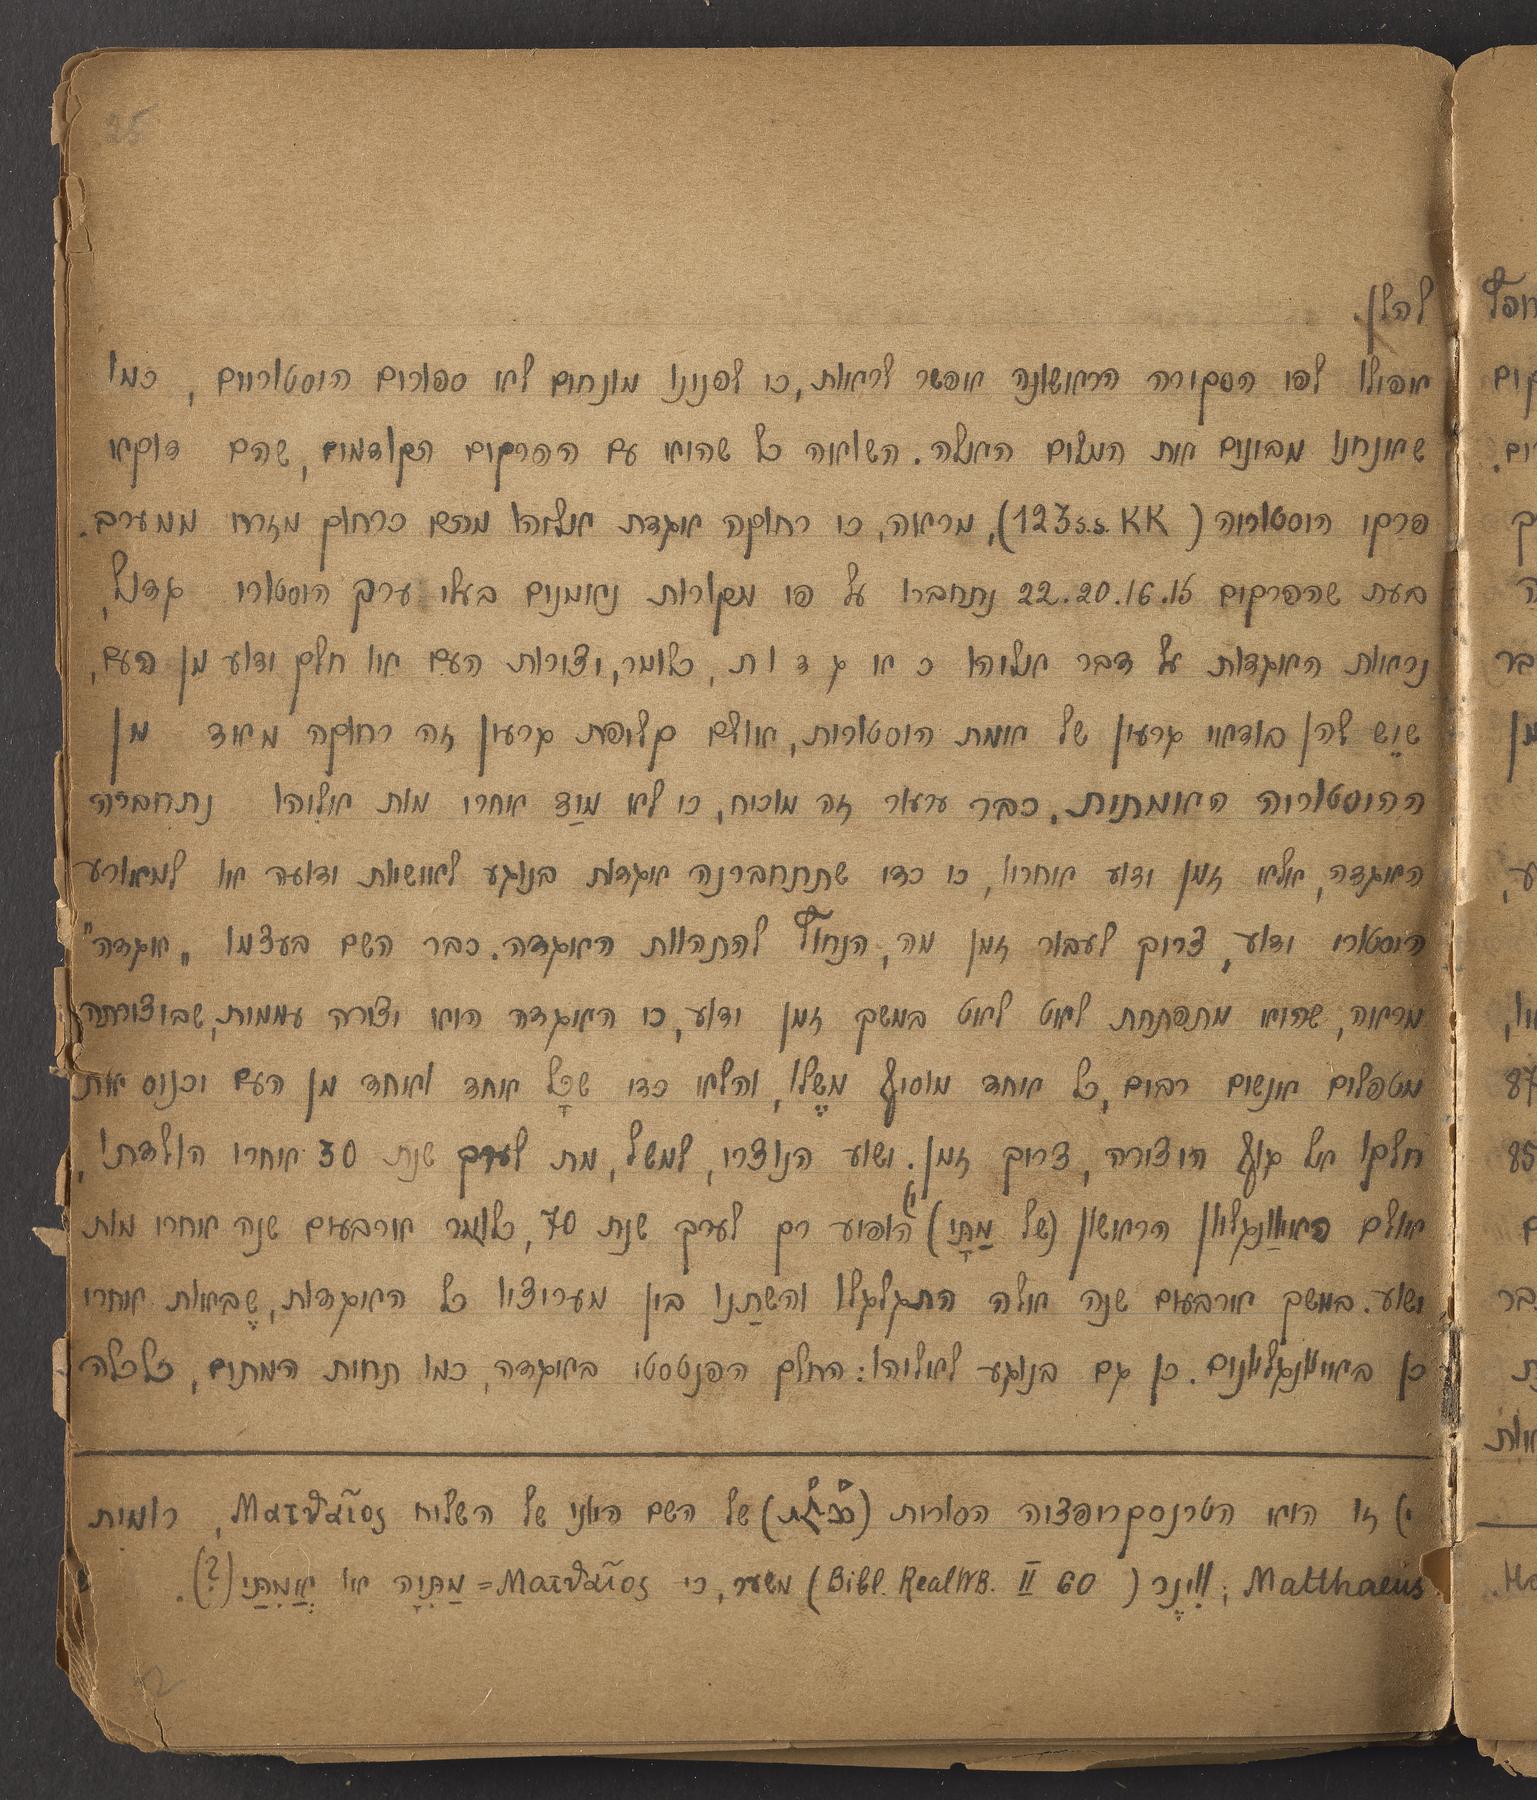 25
להלן.
אפילו לפי הסקירה הראשונה אפשר לראות, כי לפנינו מונחים לא ספורים היסטוריים, כמו
שאנחנו מבינים את המלים האלה. השואה כל שהיא עם הפרקים הקודמים, שהם דוקא
פרקי היסטוריה (KK .s.s 123), מראה, כי רחוקה אגדת אליהו מהם כרחוק מזרח ממערב.
בעת שהפרקים 15. 16. 20. 22 נתחברו על פי מקורות נאמנים בעלי ערך היסטורי גדול,
נראות האגדות על דבר אליהו כ א ג ד ו ת, כלומר, יצורות העם או חלק ידוע מן העם,
שיֶש להן בודאי גרעין של אמת היסטורית, אולם קליפת גרעין זה רחוקה מאוד מן
ההיסטוריה האמתית. כבר ערעור זה מוכיח, כי לא מִיַד אחרי מות אליהו נתחברה
האגדה, אלא זמן ידוע אחריו, כי כדי שתתחברנה אגדות בנוגע לאישיות ידועה או למאורע
היסטורי ידוע, צריך לעבור זמן מה, הנחוץ להתהוות האגדה. כבר השם בעצמו „אגדה"
מראה, שהיא מתפתחת לאט לאט במשך זמן ידוע, כי האגדה היא יצורה עממית, שביצורתה
מטפלים אנשים רבים, כל אחד מוסיף משֶלו, והלא כדי שכָל אחד ואחד מן העם יכנוס את
חלקו אל גוף היצורה, צריך זמן. ישוע הנוצרי, למשל, מת לערך שנת 30 אחרי הולדתו,
אולם האיוַנגליון הראשון (של מַתָּי) א) הופיע רק לערך שנת 70, כלומר ארבעים שנה אחרי מות
ישוע. במשך ארבעים שנה אלה התגלגלו והשתַנו בין מעריציו כל האגדות, שֶבאות אחרי
כן באיונגליונים. כן גם בנוגע לאליהו: החלק הפנטסטי באגדה, כמו תחית המתים, כלכלה
א) זו היא הטרנסקריפציה הסורית של השם היוני של השליח Ματθαῖος, רומית
Matthaeus; וִינֶר (Bibl. RealWB. II 60) משער, כי Ματθαῖος = מַתִּיָה או אֲמִתַּי (?).